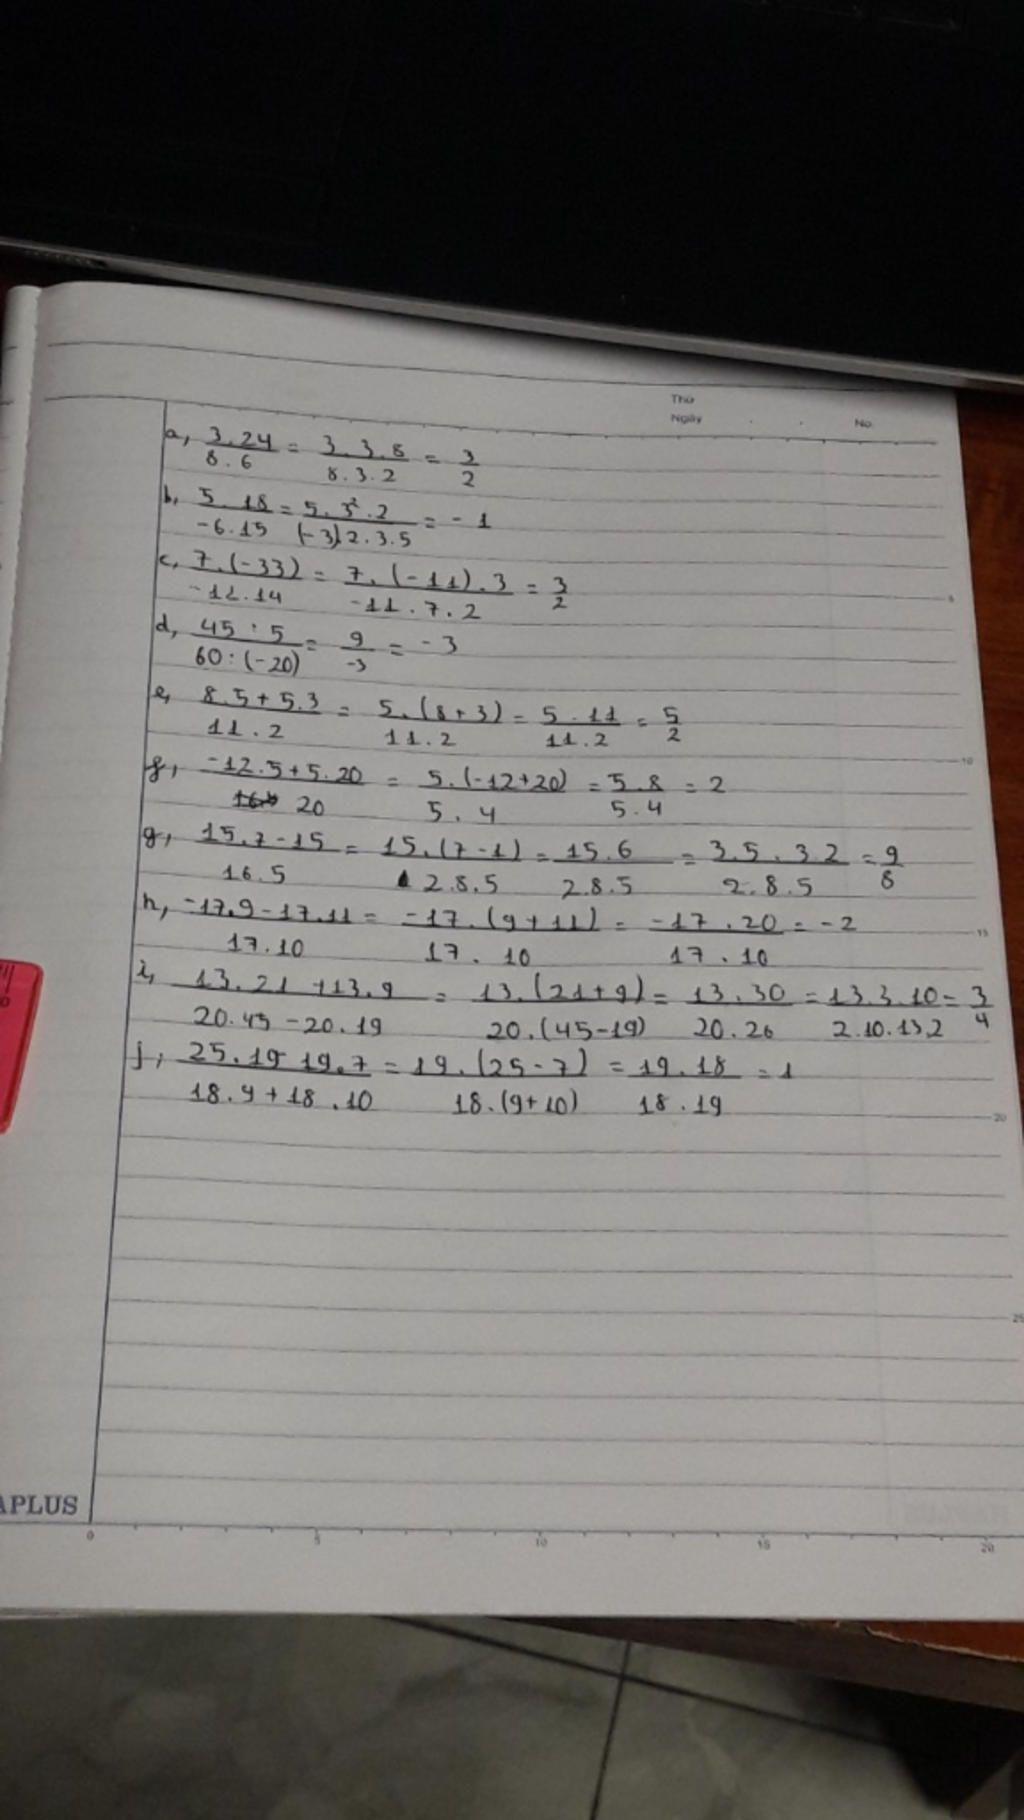 Thứ
Ngày . . No.
a, 3.24/8.6 = 3.3.8/8.3.2 = 3/2
b, 5.18/-6.15 = 5.3².2/(-3).2.3.5 = -1
c, 7.(-33)/-11.14 = 7.(-11).3/-11.7.2 = 3/2
d, 45:5/60:(-20) = 9/-3 = -3
e, 8.5+5.3/11.2 = 5.(8+3)/11.2 = 5.11/11.2 = 5/2
f, -12.5+5.20/20 = 5.(-12+20)/5.4 = 5.8/5.4 = 2
g, 15.7-15/16.5 = 15.(7-1)/2.8.5 = 15.6/2.8.5 = 3.5.3.2/2.8.5 = 9/8
h, -17.9-17.11/17.10 = -17.(9+11)/17.10 = -17.20/17.10 = -2
i, 13.21+13.9/20.45-20.19 = 13.(21+9)/20.(45-19) = 13.30/20.26 = 13.3.10/2.10.13.2 = 3/4
j, 25.19 19.7/18.9+18.10 = 19.(25-7)/18.(9+10) = 19.18/18.19 = 1
5
10
15
20
25
APLUS
0 5 10 15 20